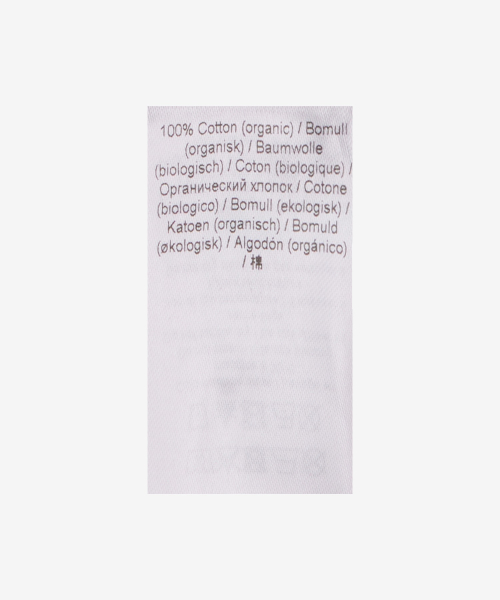 100% Cotton (organic) / Bomull
(organisk) / Baumwolle
(biologisch) / Coton (biologique) /
Органический хлопок / Cotone
(biologico) / Bomull (ekologisk) /
Katoen (organisch) / Bomuld
(økologisk) / Algodón (orgánico)
/ 棉